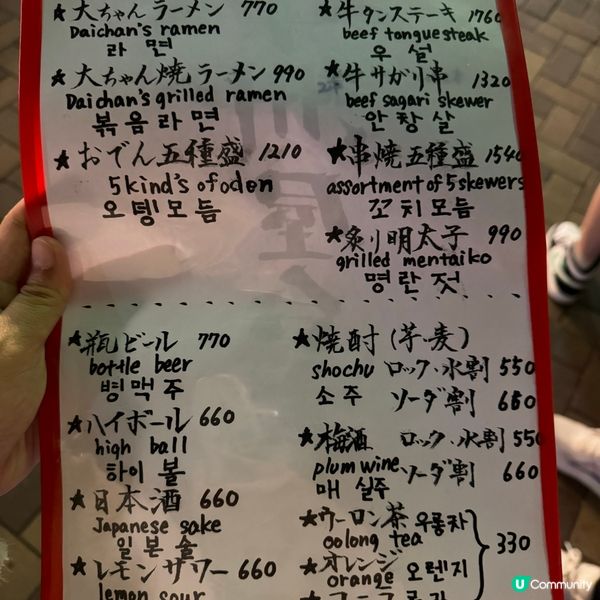 ★大ちゃんラーメン 770
Daichan's ramen
라 면
★大ちゃん焼ラーメン 990
Daichan's grilled ramen
볶음라면
★おでん五種盛 1210
5kind's of odon
오뎅모듬
★牛タンステーキ 1760
beef tongue steak
우 설
★牛サガリ串 1320
beef sagari skewer
안창살
★串焼五種盛 1540
assortment of 5 skewers
꼬치모듬
★炙り明太子 990
grilled mentaiko
명란젓
★瓶ビール 770
bottle beer
병맥주
★ハイボール 660
high ball
하이 볼
★日本酒 660
Japanese sake
일본술
★レモンサワー 660
lemon sour
★焼酎(芋・麦)
shochu ロック・水割 550
소주 ソーダ割 660
★梅酒 ロック・水割 550
plum wine ソーダ割 660
매실주
★ウーロン茶 우롱차
oolong tea
★オレンジ 오렌지 330
orange
U Community